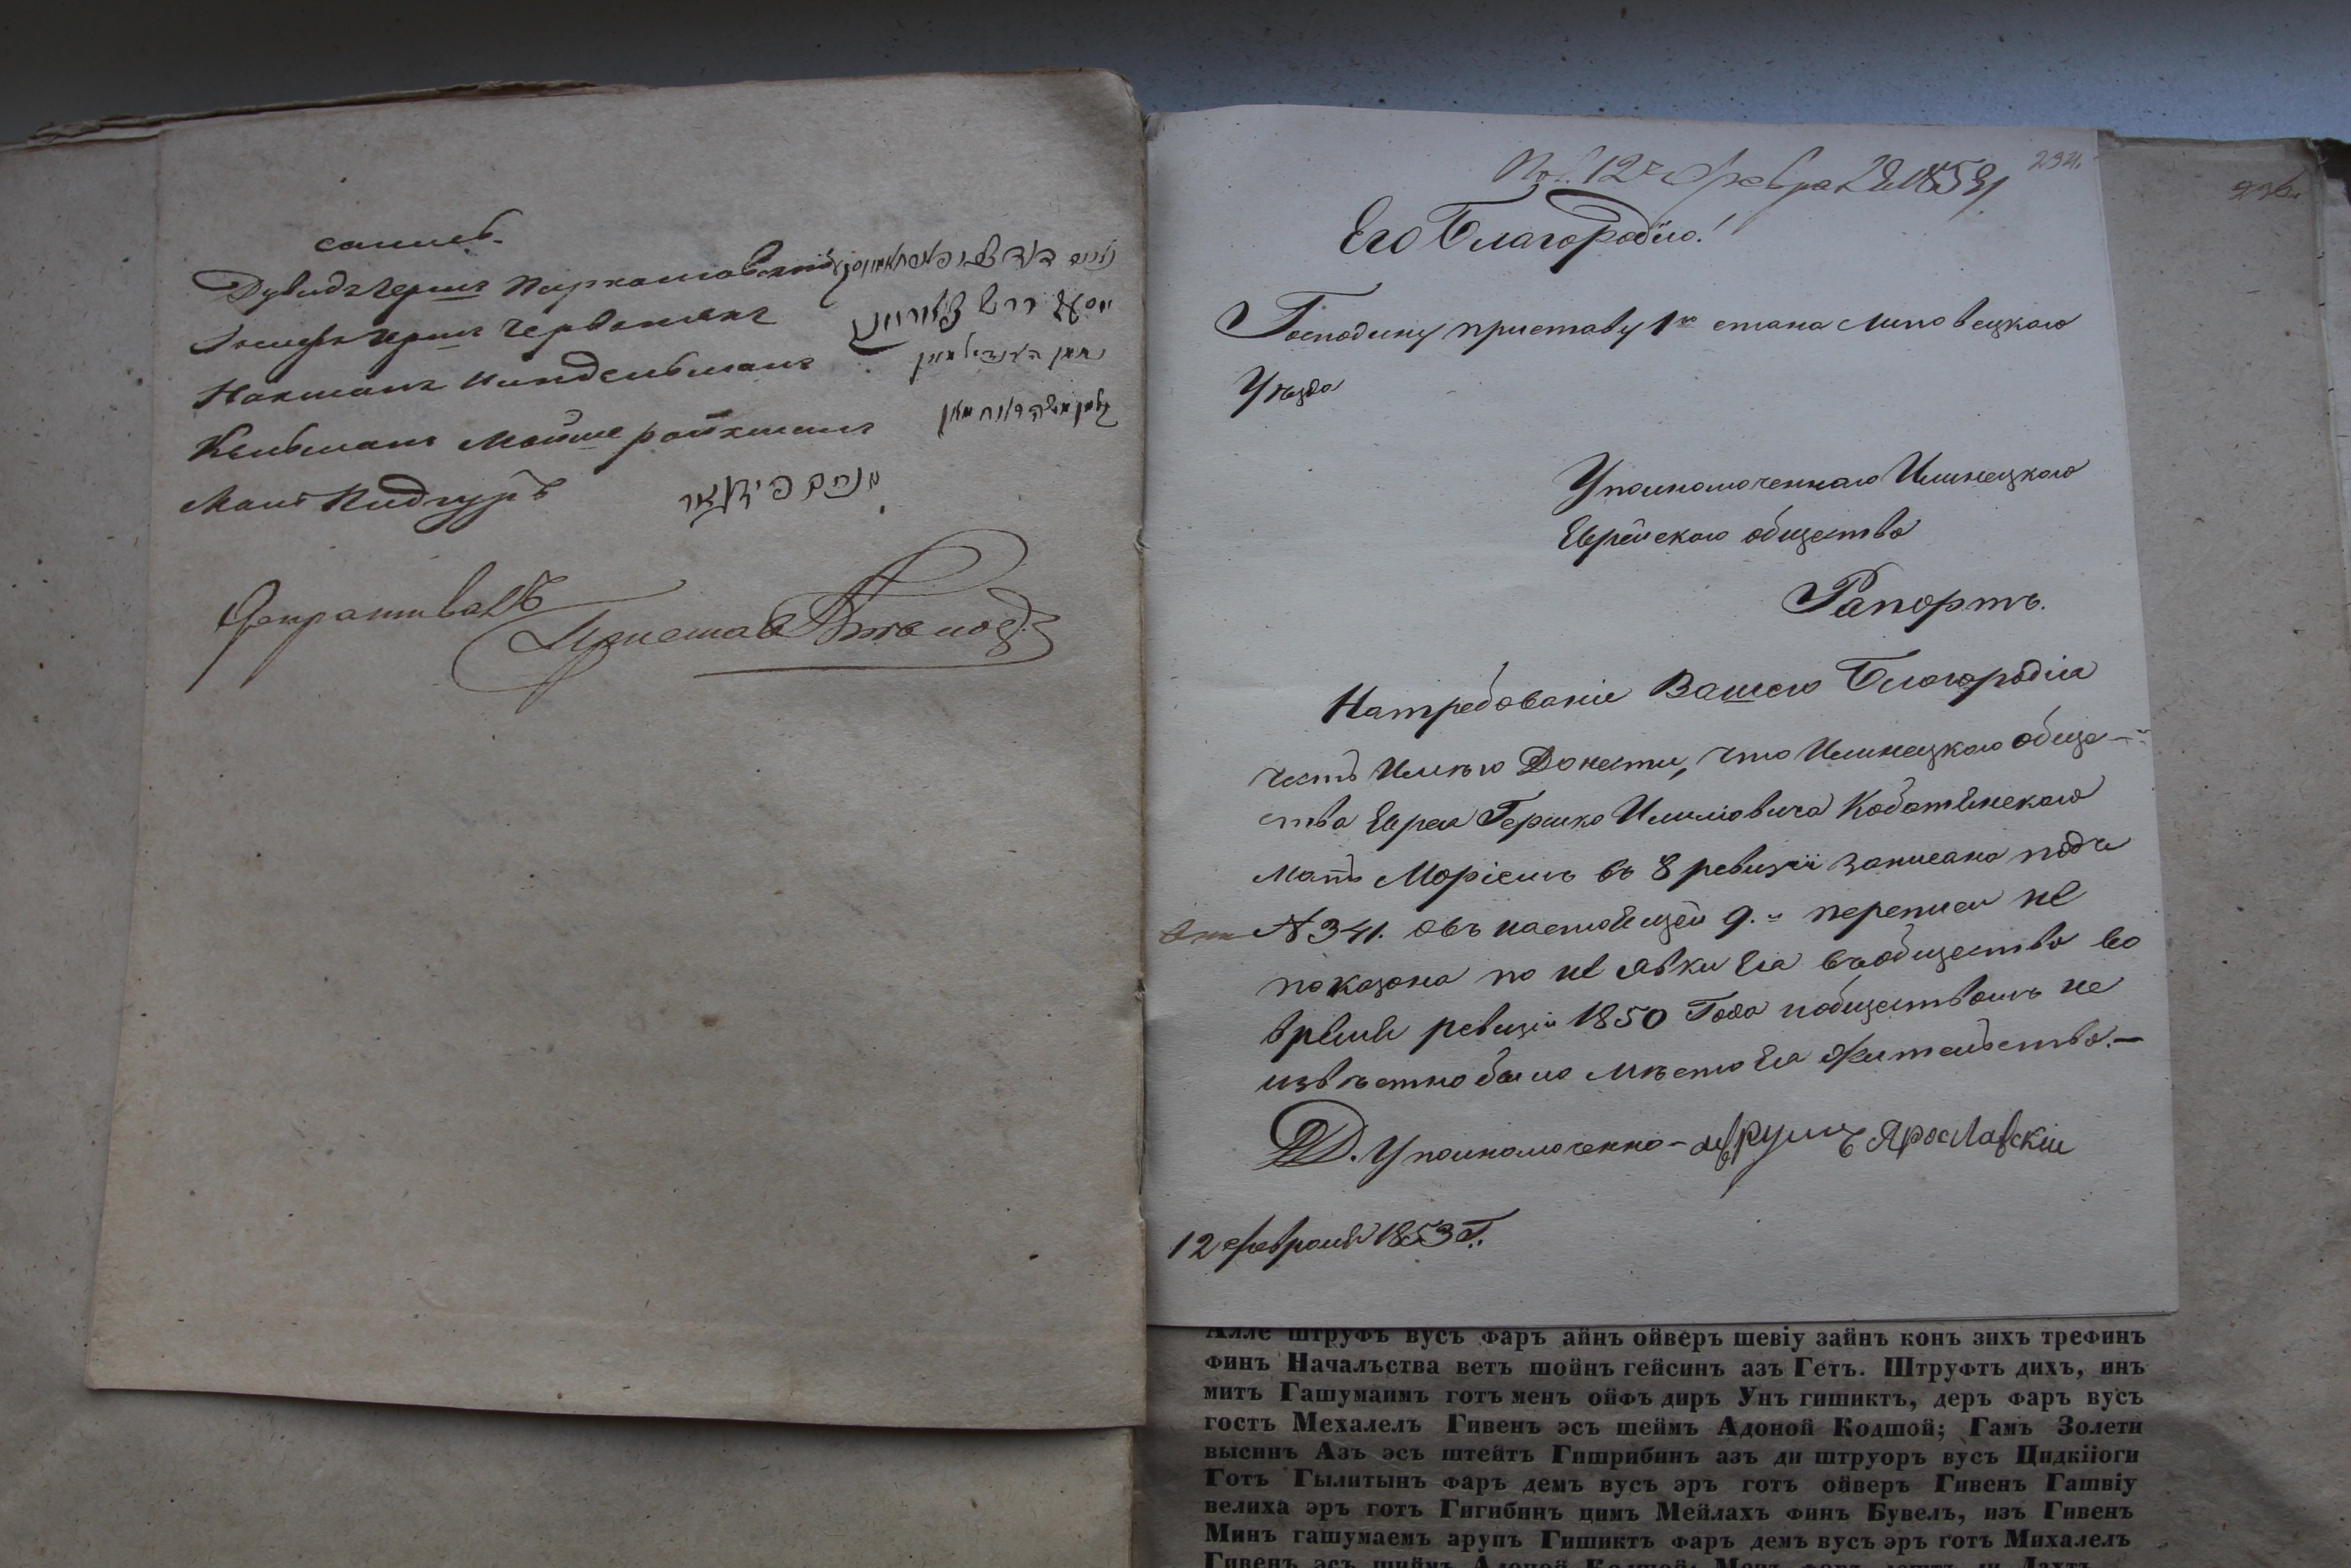 самиъ.
Дувидъ Герш
Іосифъ Герш Червонякъ
Нахманъ Гинденьманъ
Кельманъ Мойше Ройхманъ
Мано Пидгуръ
יוסף הירש
נחמן הענדילמאן
קלמן משה רויחמאן
מנחם פידגאר
Допрашивалъ
Приставъ
Пол. 12го февраля 1853
234.
236.
Его Благородію!
Господину приставу 1го стана Липовецкаго
Уѣзда
Уполномоченнаго Илинецкаго
Еврейскаго общества
Рапортъ.
На требованіе Вашего Благородія
честь Имѣю Донести, что Илинецкаго обще-
ства Еврея Гершко Илиовича Кобатѣнскаго
мать Моріемъ въ 8 ревизіи записана подъ
N 341. а въ настоящей 9.й переписи не
показана по не явки Ея въ общество во
время ревизіи 1850 Года и обществомъ не
извѣстно было мѣсто Ея Жительства.—
Уполномоченно- Аврумъ Ярославскій
12 февраля 1853 Г.
Алле штруфъ вусъ фаръ айнъ ойверъ шевіу зайнъ конъ зихъ трефинъ
финъ Начальства ветъ шойнъ гейсинъ азъ Гетъ. Штруфтъ дихъ, инъ
митъ Гашумаимъ готъ менъ ойфъ диръ Унъ гишиктъ, деръ фаръ вусъ
гостъ Мехалелъ Гивенъ эсъ шеймъ Адоной Кодшой; Гамъ Золети
высинъ Азъ эсъ штейтъ Гишрибинъ азъ ди штруоръ вусъ Цидкііоги
Готъ Гылитынъ фаръ демъ вусъ эръ готъ ойверъ Гивенъ Гашвіу
велиха эръ готъ Гигибинъ цимъ Мейлахъ финъ Бувелъ, изъ Гивенъ
Минъ гашумаемъ арупъ Гишиктъ фаръ демъ вусъ эръ готъ Михалелъ
Гивенъ эсъ шиймъ Адоной